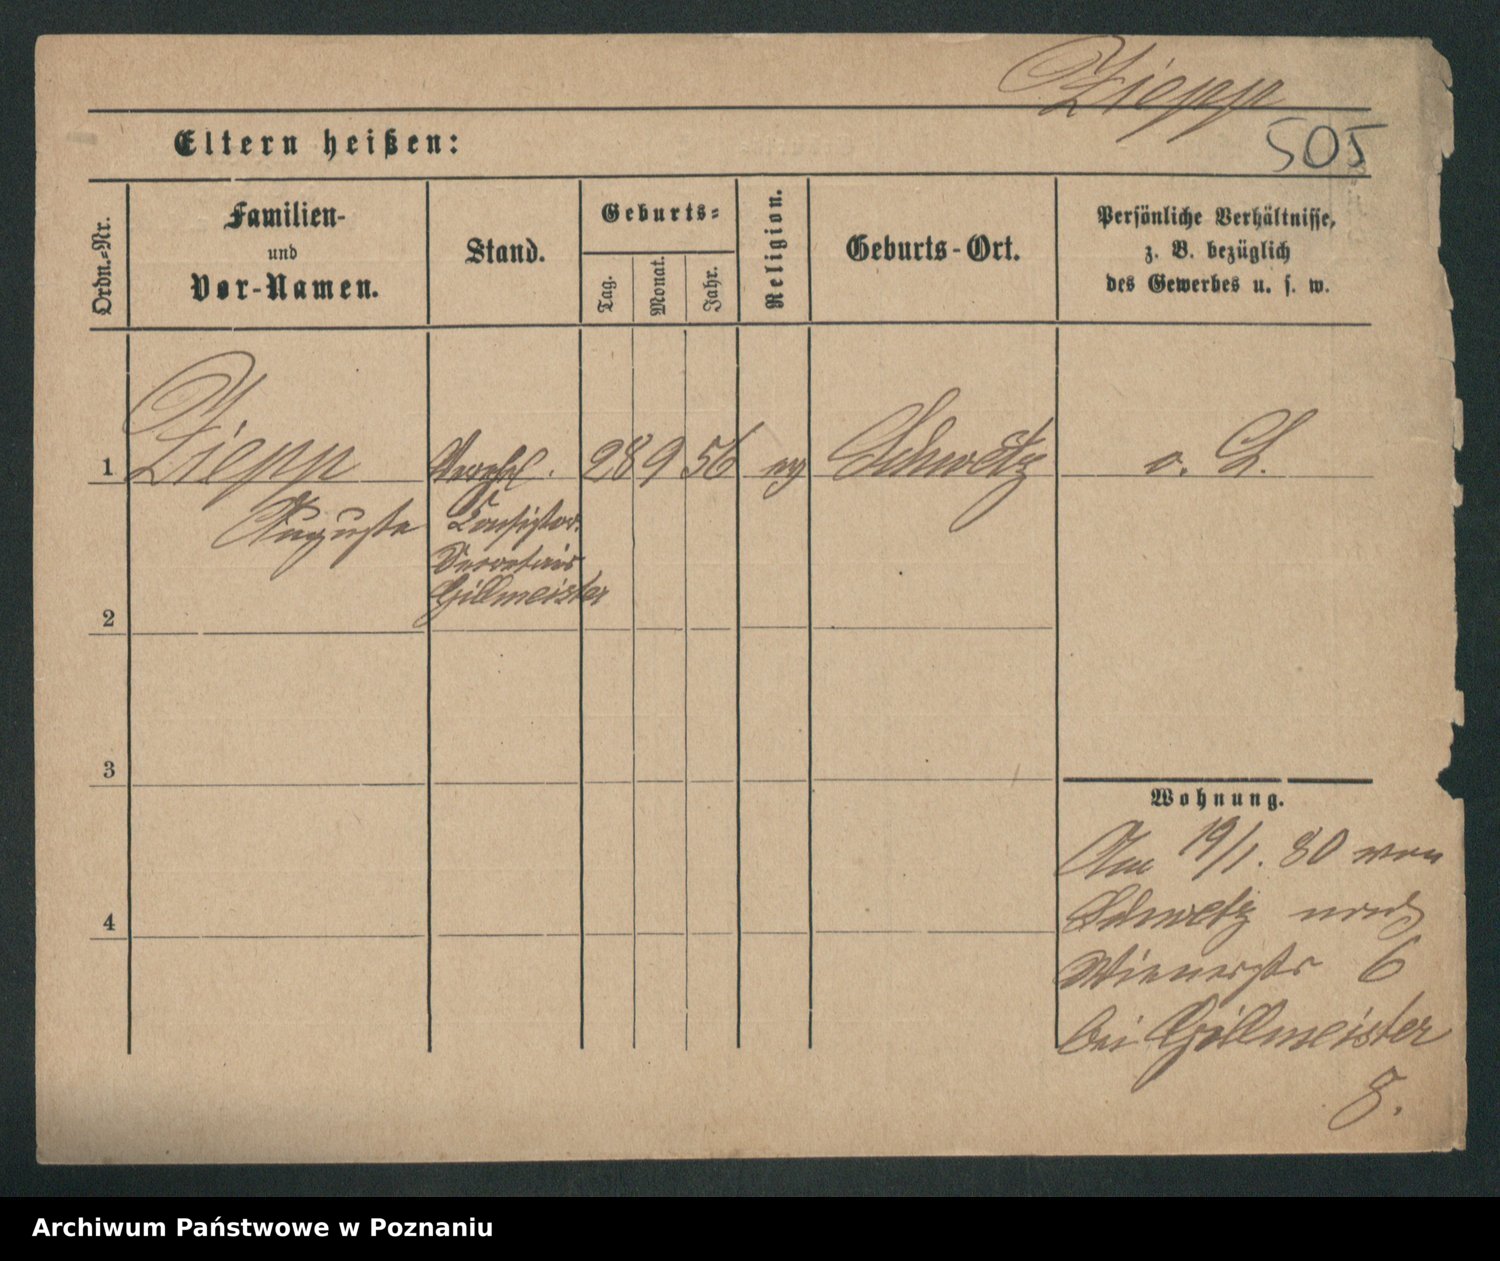 Ziepp
505
Eltern heißen:
Ordn.-Nr.
Familien-
und
Vor-Namen.
Stand.
Geburts-
Tag.
Monat.
Jahr.
Religion.
Geburts-Ort.
Persönliche Verhältnisse,
z. B. bezüglich
des Gewerbes u. s. w.
1 Ziepp 28 9 56 ev Schwetz o. L.
Auguste Consistor.
Secretair
Gillmeister
2
3
Wohnung.
Am 19/1. 80 von
Schwetz nach
4
Wienerstr 6
bei Gillmeister
8.
Archiwum Państwowe w Poznaniu